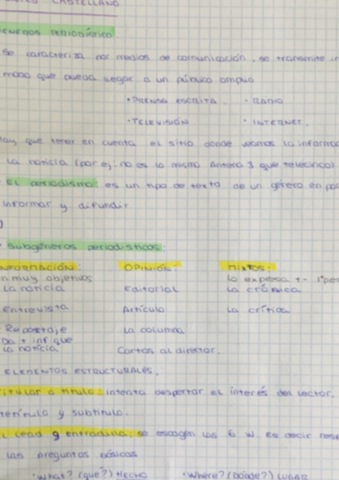 CASTELLANO
GÉNEROS PERIODÍSTICO
Se caracteriza por medios de comunicación, se transmite
modo que pueda llegar a un público amplio
· PRENSA ESCRITA · RADIO
· TELEVISIÓN · INTERNET.
Hay que tener en cuenta el sitio donde vemos la informa
La noticia (por ej, no es lo mismo Antena 3 que telecinco)
El periodismo es un tipo de texto de un género en
informar y difundir
Subgéneros periodísticos:
INFORMACIÓN: OPINIÓN: MIXTOS:
muy objetivos lo expresa + - 1ª per
La noticia Editorial La crónica
Entrevista Artículo La crítica
Reportaje La columna
Da + inf que
la noticia Cartas al director.
ELEMENTOS ESTRUCTURALES.
titular o título: intenta despertar el interés del lector.
antetítulo y subtítulo.
El Lead y entradilla: se escogen las 6 W es decir
las preguntas básicas
· What? (qué?) HECHO · Where? (Dónde?) LUGAR